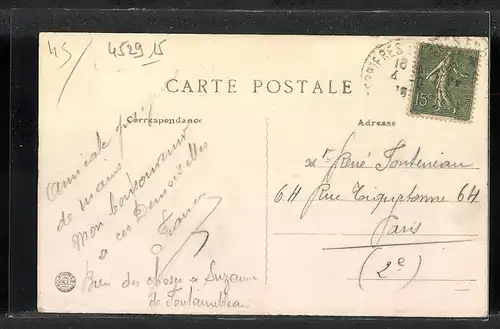 45
4529 15
CARTE POSTALE
Correspondance
Adresse
15c
Amicale
de mains
Mon bonhommeur
a ces Demoiselles
France
Bien des choses a Suzanne
de Fontainebleau
Mr René Fonteneau
64 Rue Tiquetonne 64
Paris
(2e)